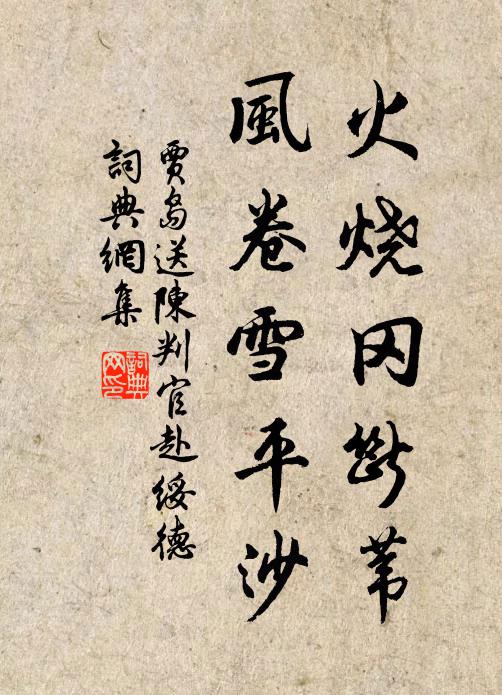 火烧冈断苇
風卷雪平沙
賈島送陳判官赴綏德
詞典網集
詞典
网印